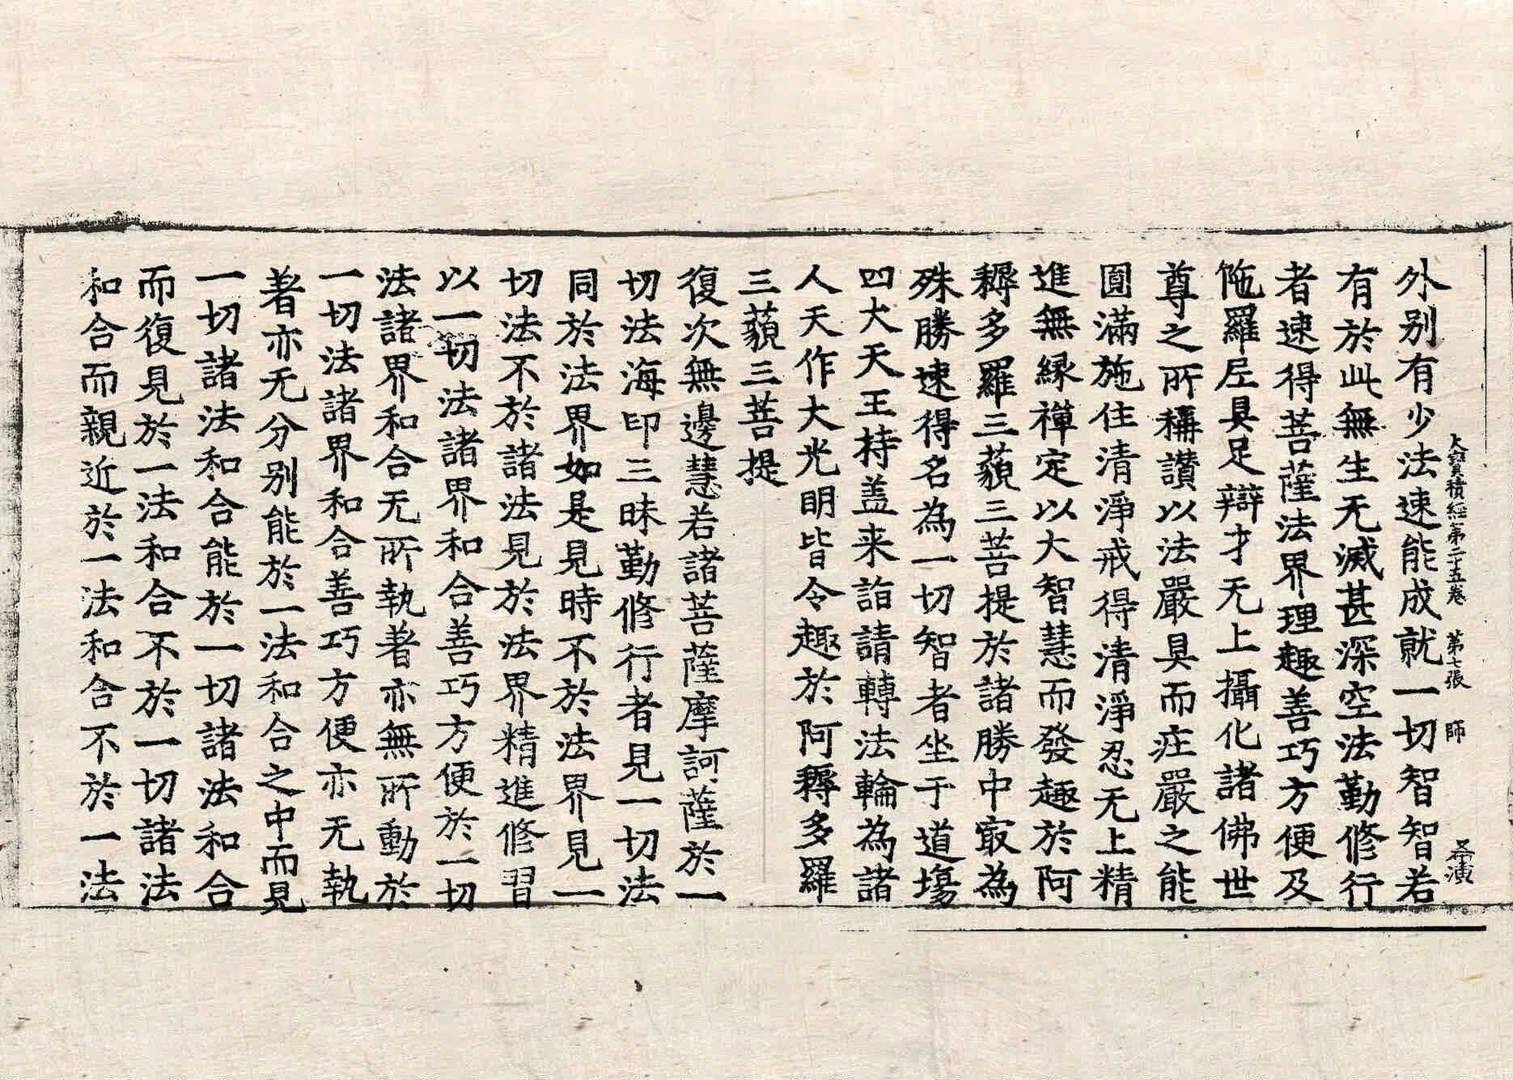 大寳積經第二十五卷　第七張　師
外别有少法速能成就一切智智若
有於此無生无滅甚深空法勤修行
者速得菩薩法界理趣善巧方便及
陁羅𡰱具足辯才无上攝化諸佛世
尊之所稱讃以法嚴具而庄嚴之能
圓滿施住清淨戒得清淨忍无上精
進無緣禪定以大智慧而發趣於阿
耨多羅三藐三菩提於諸勝中㝡為
殊勝速得名為一切智者坐于道塲
四大天王持盖来詣請轉法輪為諸
人天作大光明皆令趣於阿耨多羅
三藐三菩提
復次無邊慧若諸菩薩摩訶薩於一
切法海印三昧勤修行者見一切法
同於法界如是見時不於法界見一
切法不於諸法見於法界精進修習
以一切法諸界和合善巧方便於一切
法諸界和合无所執著亦無所動於
一切法諸界和合善巧方便亦无執
著亦无分别能於一法和合之中而見
一切諸法和合能於一切諸法和合
而復見於一法和合不於一切諸法
和合而親近於一法和合不於一法